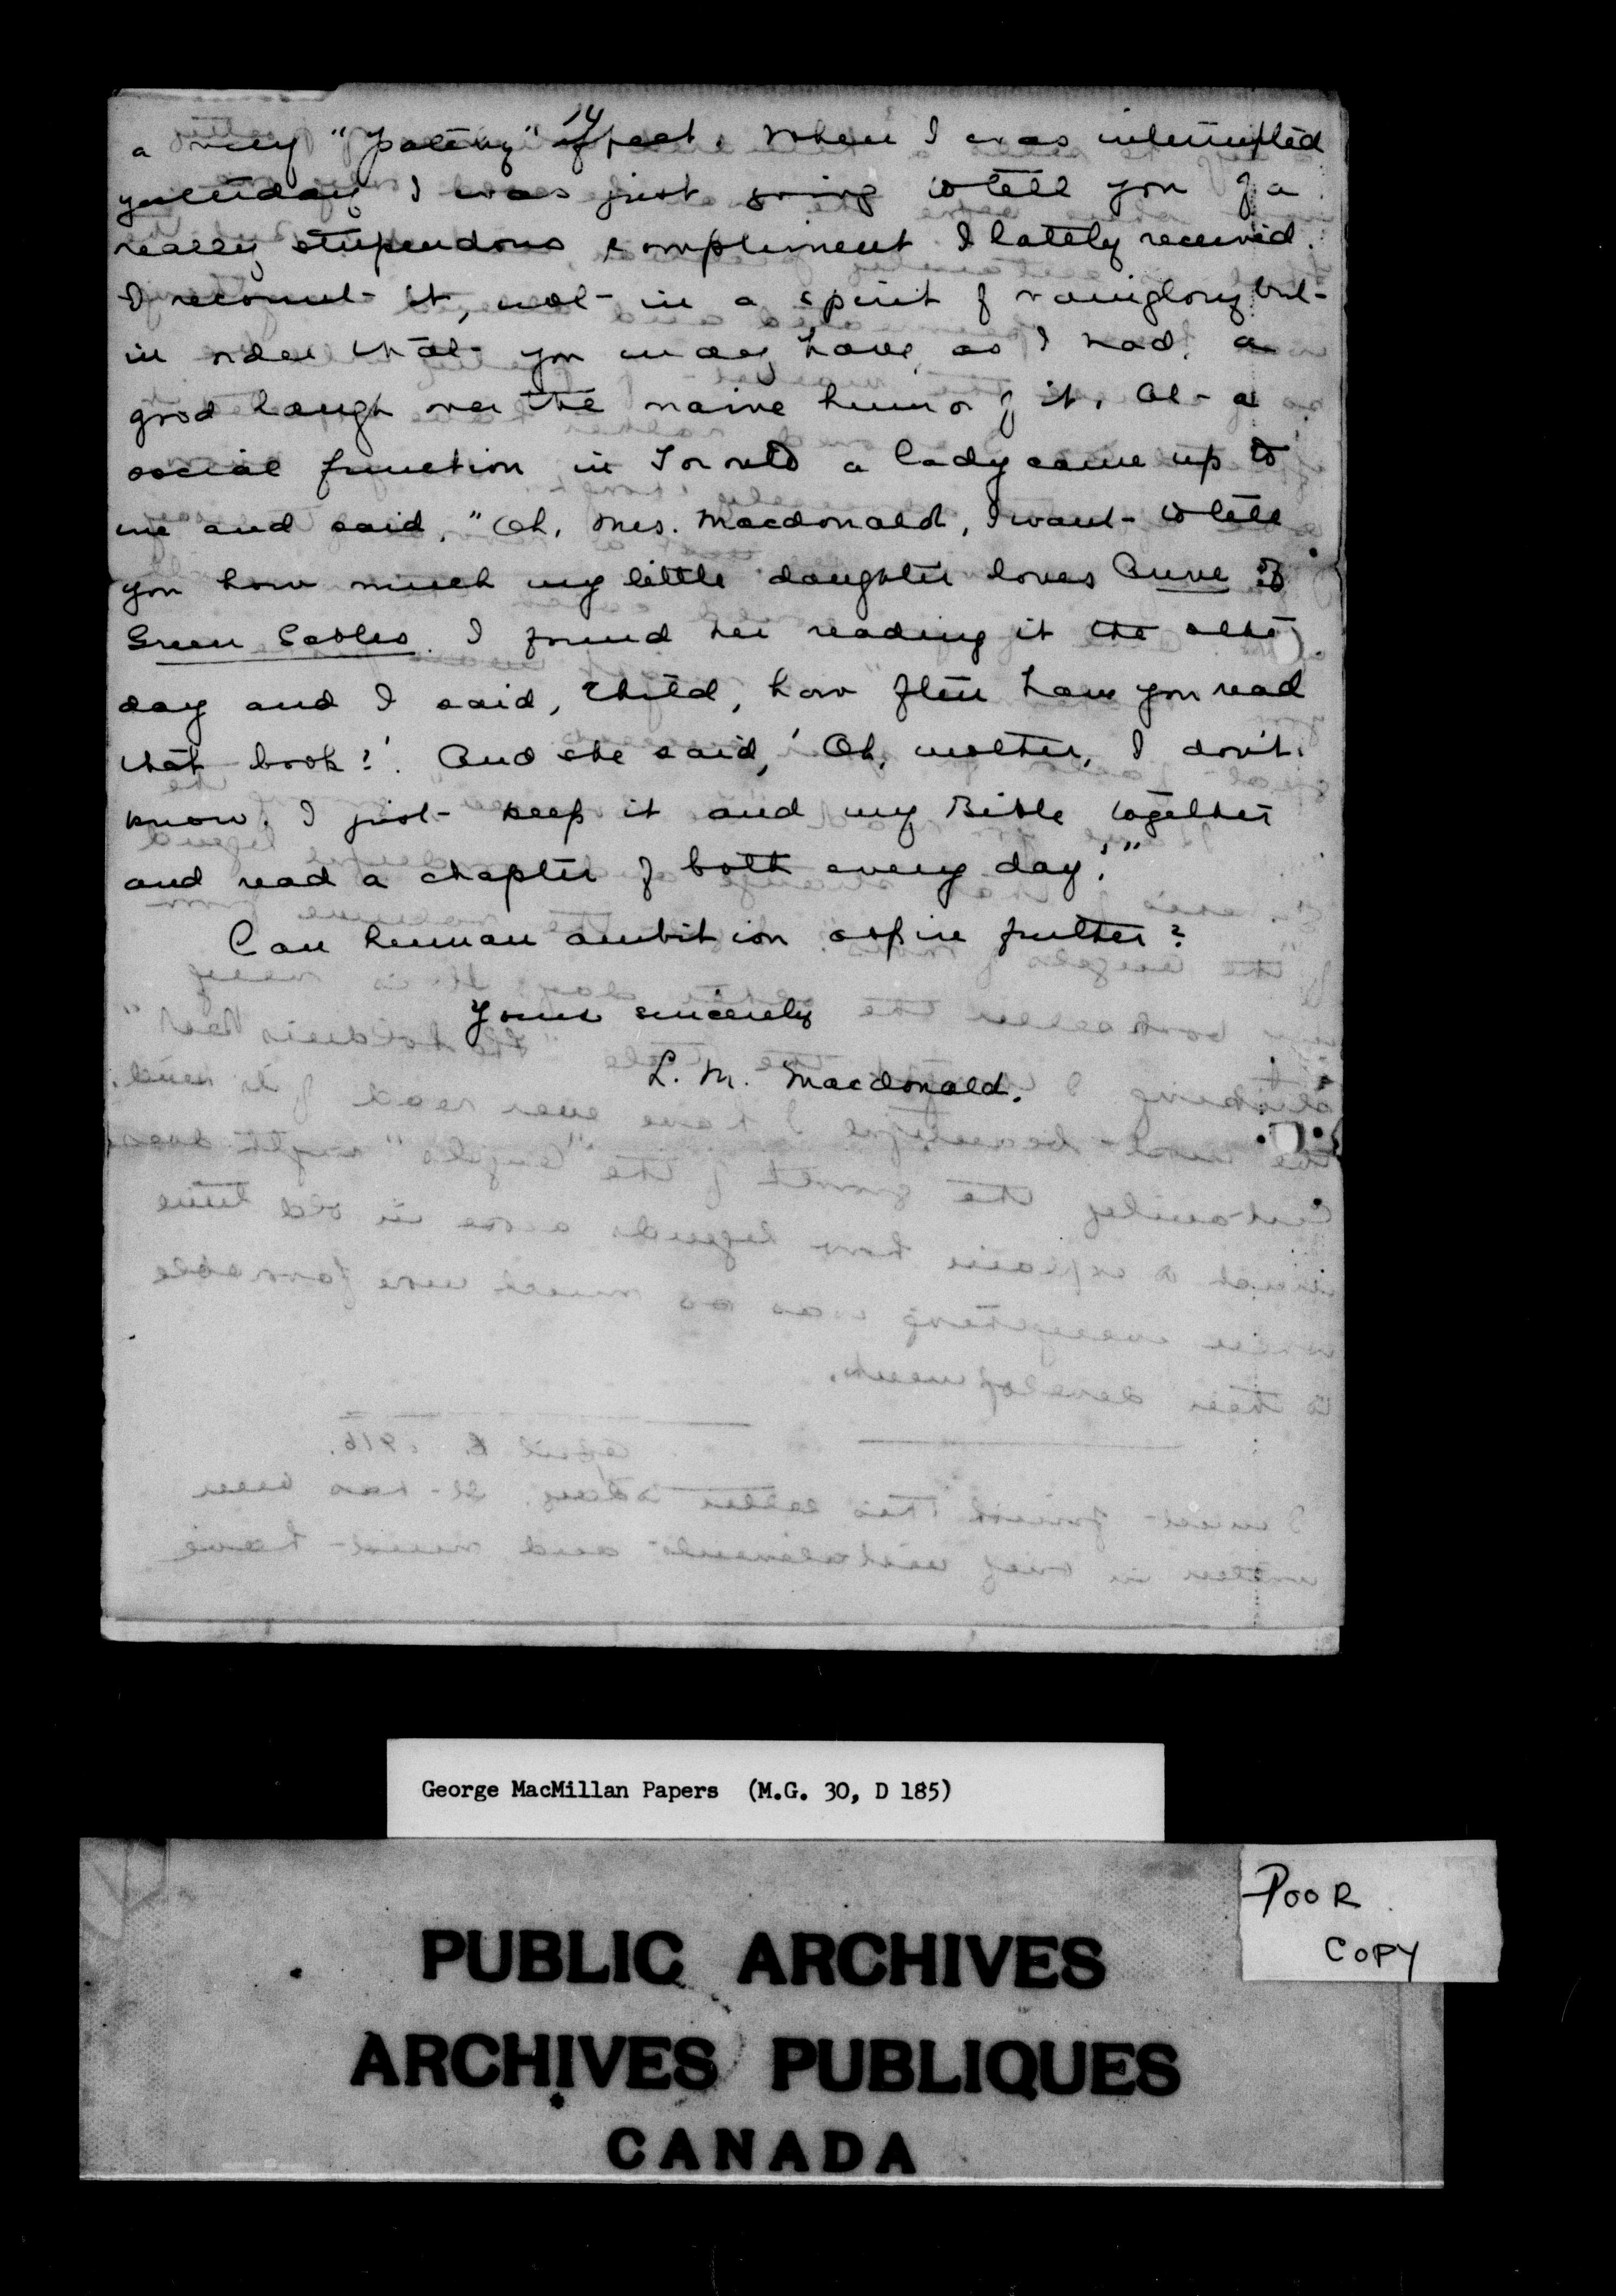 14
a very "patchy" effect. When I was interrupted
yesterday I was just going to tell you of a
really stupendous compliment I lately received.
I recount it, not in a spirit of vainglory but
in order that you may have, as I had, a
good laugh over the naive humor of it. At a
social function in Toronto a lady came up to
me and said, "Oh, Mrs. Macdonald, I want to tell
you how much my little daughter loves Anne of
Green Gables. I found her reading it the other
day and I said, 'Child, how often have you read
that book?' And she said, 'Oh, mother, I don't
know. I just keep it and my Bible together
and read a chapter of both every day.'"
Can human ambition aspire further?
Yours sincerely
L. M. Macdonald.
George MacMillan Papers (M.G. 30, D 185)
POOR
COPY
PUBLIC ARCHIVES
ARCHIVES PUBLIQUES
CANADA